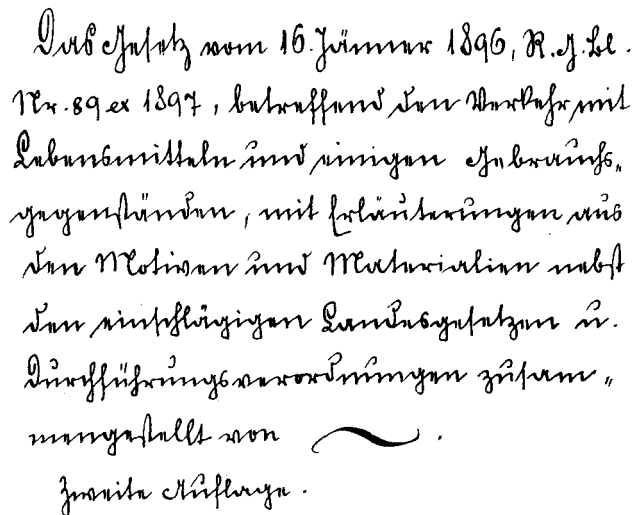 Das Gesetz vom 16. Jänner 1896, R. G. Bl.
Nr. 89 ex 1897, betreffend den Verkehr mit
Lebensmitteln und einigen Gebrauchs-
gegenständen, mit Erläuterungen aus
den Motiven und Materialien nebst
den einschlägigen Landesgesetzen u.
Durchführungsverordnungen zusam-
mengestellt von .
Zweite Auflage.